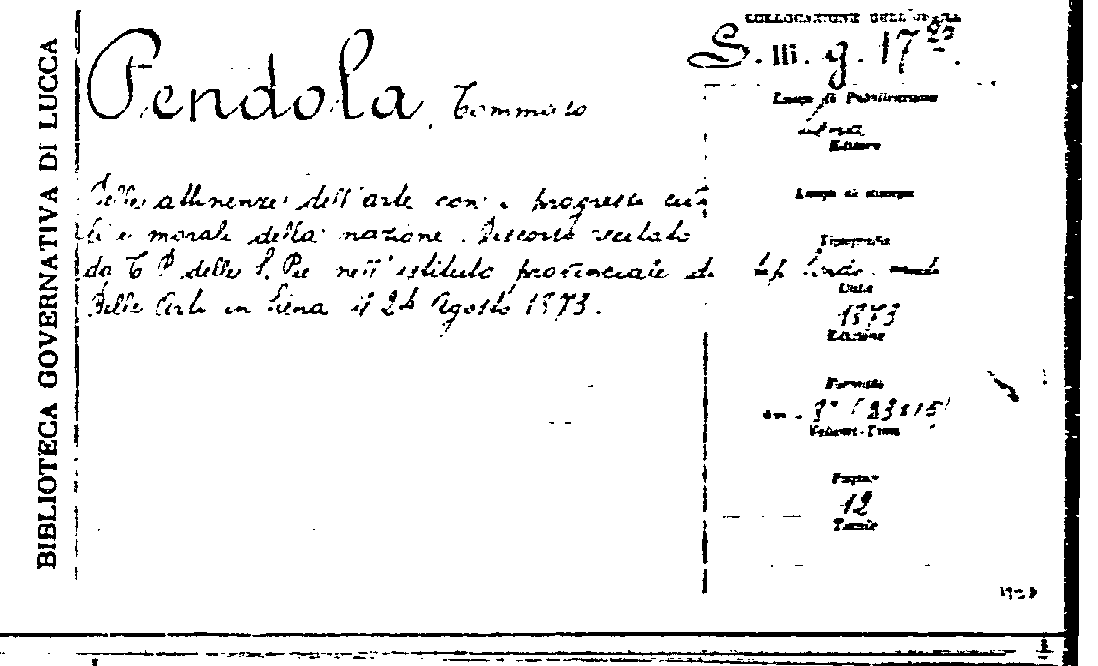 BIBLIOTECA GOVERNATIVA DI LUCCA
Pendola, Tommaso
Delle attinenze dell'arte con i progressi civi
li e morali della nazione. Discorso recitato
da T. P. delle S. Pie nell'istituto provinciale di
Belle Arti in Siena il 24 Agosto 1873.
COLLOCAZIONE DELL'OPERA
S. III. g. 17
Luogo di Pubblicazione
Siena
Editore
Luogo di stampa
Tipografia
tip. Sordo-muti
Data
1873
Edizione
Formato
in - 8° (23x15)
Volumi-Tomi
Pagine
12
Tavole